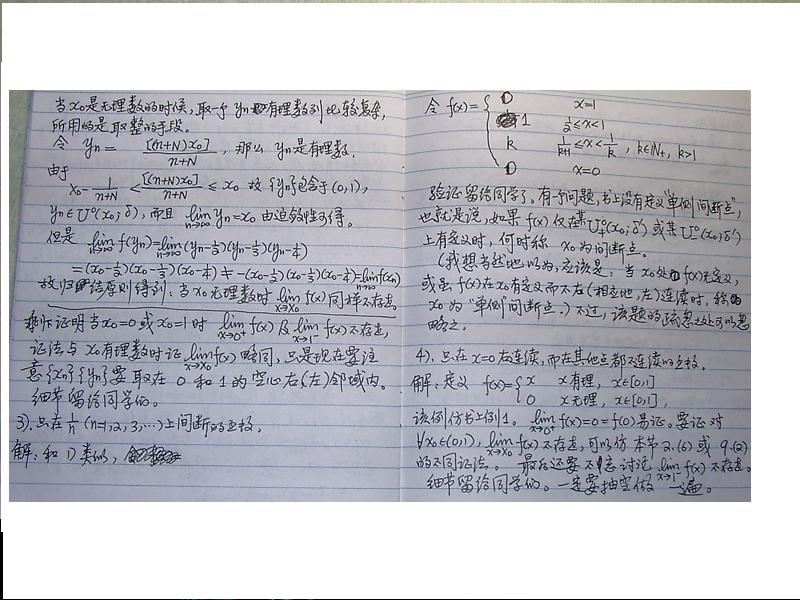 当x₀是无理数的时候,取一个yₙ有理数列比较复杂,
所用的是取整的手段。
令 yₙ = [(n+N)x₀]/(n+N) , 那么 yₙ是有理数.
由于
x₀ - 1/(n+N) < [(n+N)x₀]/(n+N) ≤ x₀ 故{yₙ}包含于(0,1),
yₙ∈U°(x₀;δ), 而且 lim_{n→∞} yₙ=x₀ 由迫敛性可得。
但是 lim_{n→∞} f(yₙ)=lim_{n→∞}(yₙ-1/2)(yₙ-1/3)(yₙ-1/4)
=(x₀-1/2)(x₀-1/3)(x₀-1/4) ≠ -(x₀-1/2)(x₀-1/3)(x₀-1/4)=lim_{n→∞}f(xₙ)
故归结原则得到:当x₀无理数时 lim_{x→x₀} f(x)同样不存在.
证明当x₀=0或x₀=1时 lim_{x→0⁺} f(x)及lim_{x→1⁻} f(x)不存在,
证法与x₀有理数时证lim_{x→x₀}f(x)略同,只是现在要注
意{xₙ}{yₙ}要取在0和1的空心右(左)邻域内。
细节留给同学们。
3).只在1/n (n=1,2,3,…)上间断的函数.
解:和1)类似,
令 f(x)={ 0 x=1
1 1/2≤x<1
k 1/(k+1)≤x<1/k , k∈N₊, k>1
0 x=0
验证留给同学了。有一个问题,书上没有定义"单侧间断点",
也就是说,如果f(x)仅在某U°₊(x₀;δ')或某U°₋(x₀;δ')
上有定义时,何时称 x₀为间断点。
(我想当然地以为,应该是:当x₀处f(x)无定义,
或虽f(x)在x₀有定义而不右(相应地,左)连续时,称
x₀为"单侧"间断点.)不过,该题的疏忽之处可以忽
略之。
4).只在x=0右连续,而在其他点都不连续的函数.
解:定义 f(x)={ x x有理, x∈[0,1]
0 x无理, x∈[0,1],
该例仿书上例1。lim_{x→0⁺}f(x)=0=f(0)易证。要证对
∀x₀∈(0,1), lim_{x→x₀}f(x)不存在,可以仿本节2.(6)或9.(2)
的不同证法。最后还要不忘讨论 lim_{x→1⁻}f(x)不存在。
细节留给同学们。一定要抽空做一遍。